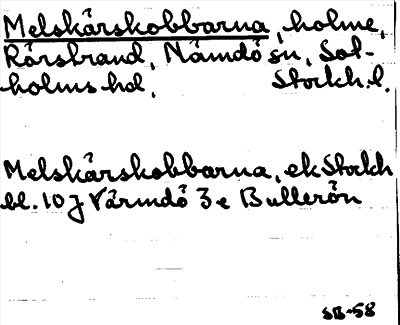 Melskärskobbarna, holme,
Rörstrand, Nämdö sn, Sot-
holms hd, Stockh. l.
Melskärskobbarna, ek Stockh
bl. 10 J Värmdö 3 e Bullerön
SB-58